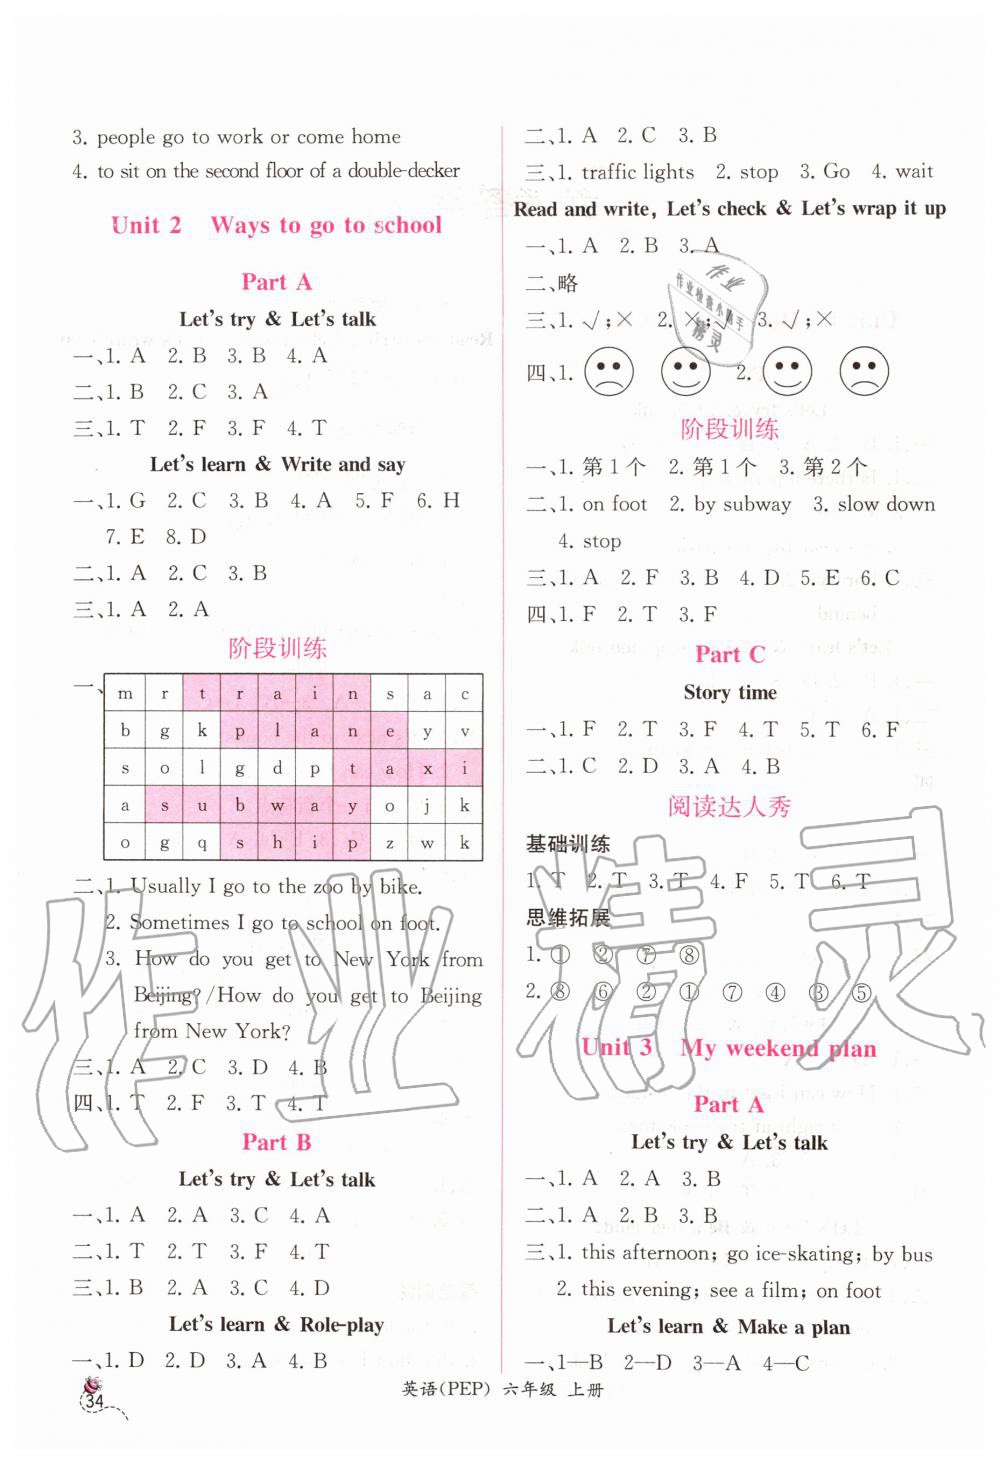 3. people go to work or come home
4. to sit on the second floor of a double-decker
Unit 2 Ways to go to school
Part A
Let's try & Let's talk
一、1. A 2. B 3. B 4. A
二、1. B 2. C 3. A
三、1. T 2. F 3. F 4. T
Let's learn & Write and say
一、1. G 2. C 3. B 4. A 5. F 6. H
7. E 8. D
二、1. A 2. C 3. B
三、1. A 2. A
阶段训练
一、
m r t r a i n s a c
b g k p l a n e y v
s o l g d p t a x i
a s u b w a y o j k
o g q s h i p z w k
二、1. Usually I go to the zoo by bike.
2. Sometimes I go to school on foot.
3. How do you get to New York from
Beijing?/How do you get to Beijing
from New York?
三、1. A 2. C 3. D 4. B
四、1. T 2. F 3. T 4. T
Part B
Let's try & Let's talk
一、1. A 2. A 3. C 4. A
二、1. T 2. T 3. F 4. T
三、1. B 2. A 3. C 4. D
Let's learn & Role-play
一、1. D 2. D 3. A 4. B
二、1. A 2. C 3. B
三、1. traffic lights 2. stop 3. Go 4. wait
Read and write, Let's check & Let's wrap it up
一、1. A 2. B 3. A
二、略
三、1. √;× 2. ×;√ 3. √;×
四、1. 2.
阶段训练
一、1. 第1个 2. 第1个 3. 第2个
二、1. on foot 2. by subway 3. slow down
4. stop
三、1. A 2. F 3. B 4. D 5. E 6. C
四、1. F 2. T 3. F
Part C
Story time
一、1. F 2. T 3. F 4. T 5. T 6. F
二、1. C 2. D 3. A 4. B
阅读达人秀
基础训练
1. T 2. T 3. T 4. F 5. T 6. T
思维拓展
1. ① ② ⑦ ⑧
2. ⑧ ⑥ ② ① ⑦ ④ ③ ⑤
Unit 3 My weekend plan
Part A
Let's try & Let's talk
一、1. A 2. A 3. B
二、1. A 2. B 3. B
三、1. this afternoon; go ice-skating; by bus
2. this evening; see a film; on foot
Let's learn & Make a plan
一、1—B 2—D 3—A 4—C
34
英语(PEP) 六年级 上册
作业精灵
作业
作业检查小助手
精灵